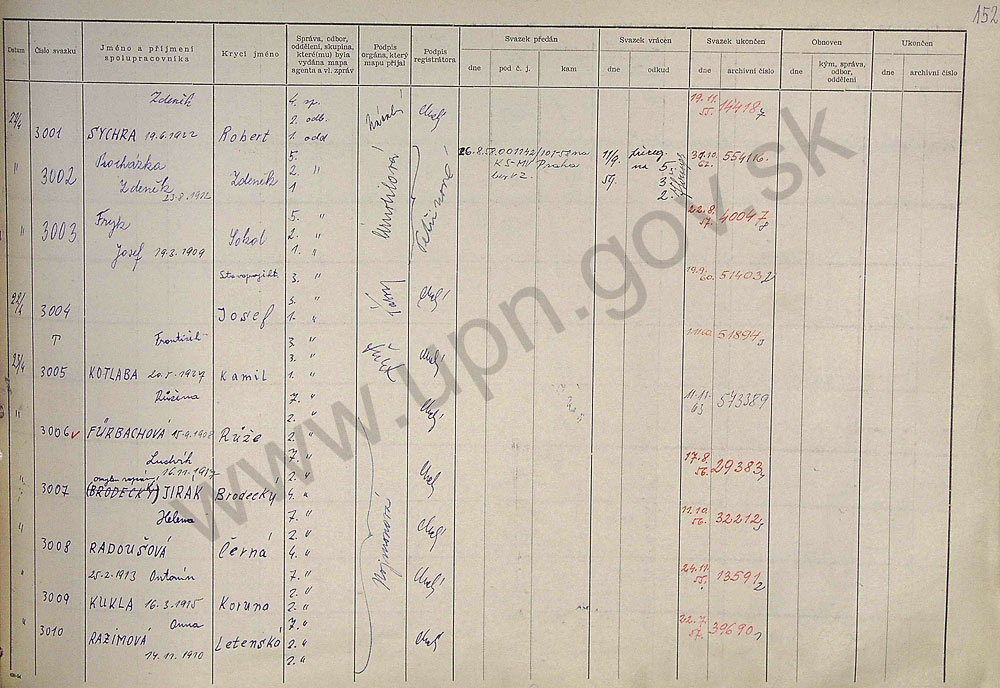 152
Datum
Číslo svazku
Jméno a příjmení
spolupracovníka
Krycí jméno
Správa, odbor,
oddělení, skupina,
které(mu) byla
vydána mapa
agenta a vl. zpráv
Podpis
orgána, který
mapu přijal
Podpis
registrátora
Svazek předán
dne
pod č. j.
kam
Svazek vrácen
dne
odkud
Svazek ukončen
dne
archivní číslo
Obnoven
dne
kým, správa,
odbor,
oddělení
Ukončen
dne
archivní číslo
Zdeněk 4. sp. 19.11. 14418
2. odb. 55. 7
3001 SÝCHRA 19.6.1922 Robert 1. odd
Procházka 5. 26.8.58 001142 Praha 11/9 31.10. 55416
3002 Zdeněk 23.8.1912 Zdeněk 2. " KS-MV 59. 62.
1
Fryk 5. " 22.8. 40047
3003 Sokol 2. " 57. 8
Josef 19.3.1909 1. "
3. " 19.9. 51403
60. 2
28/4 3004 Josef 3. "
1. "
František 3 " 51894
3. "
23/4 3005 KOTLABA 20.5.1927 Kamil 1. "
Růžena 7. " 11.11. 573389
2. " 63
3006 FÜRBACHOVÁ 15.9.1908 Růže 2. "
Ludvík 7. " 17.8. 29383
16.11.1917 2. " 56.
3007 (BRODECKÝ) JIRÁK Brodecký 4. "
Helena 7. " 11.10 32212
2. " 56.
3008 RADOUŠOVÁ Černá 4. "
25.2.1913 Antonín 7. " 24.11. 13591
2. " 55. 2
3009 KUKLA 16.3.1915 Koruna 2. "
Anna 7. " 22.7. 39690
3010 RAZIMOVÁ Letenská 2. " 57.
14.11.1910 2. "
www.upn.gov.sk